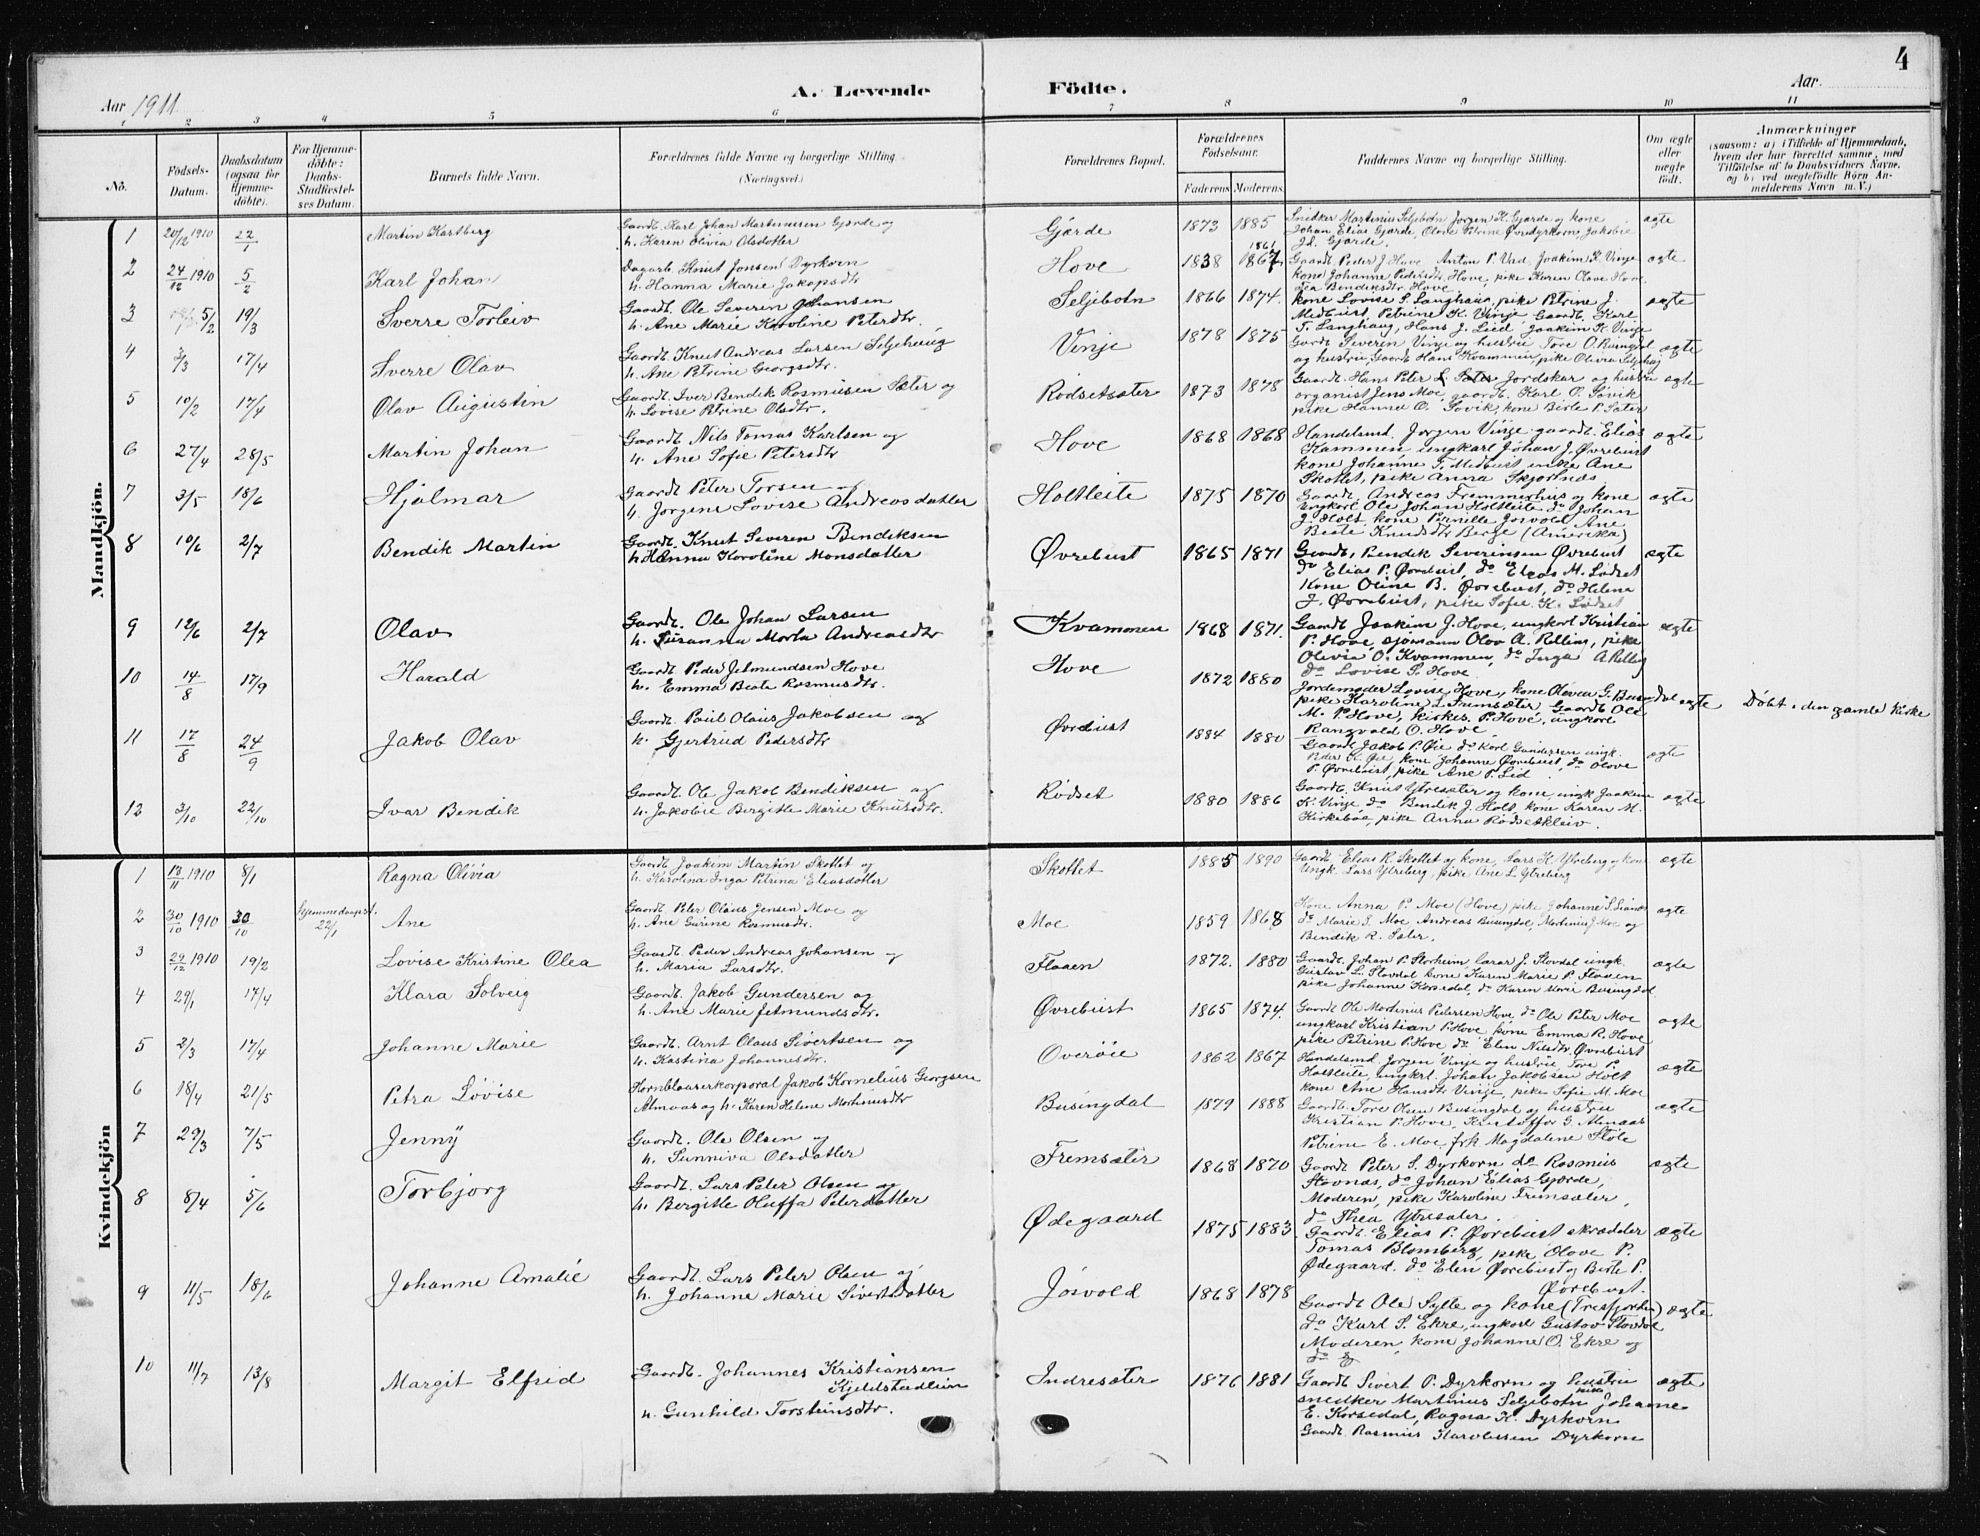 4
Aar 1911
A. Levende Födte.
Aar.
1 2 3 4 5 6 7 8 9 10 11
No.
Fødsels-Datum.
Daabsdatum (ogsaa for Hjemmedöbte).
For Hjemmedöbte: Daabs-Stadfæstelses Datum.
Barnets fulde Navn.
Forældrenes fulde Navne og borgerlige Stilling. (Næringsvei.)
Forældrenes Bopæl.
Forældrenes Födselsaar.
Faderens Moderens
Faddernes Navne og borgerlige Stilling.
Om ægte eller uægte födt.
Anmærkninger
(saasom: a) i Tilfælde af Hjemmedaab, hvem der har forrettet samme, med Tilföielse af to Daabsvidners Navne, og b) ved uægtefödte Börn Anmelderens Navn m. V.)
Mandkjön.
1 20/12 1910 22/1 Martin Karlberg
Gaardb. Karl Johan Martinusen Gjærde og
h. Karen Olivia Olsdatter
Gjærde 1873 1885
Snedker Martinius Seljebotn Jørgen K. Gjærde og kone
Johan Elias Gjærde, Olove Petrine Øvredyrkorn, Jakobie
Jd. Gjærde.
ægte
2 24/12 1910 5/2 Karl Johan
Dagarb. Knut Jonsen Dyrkorn
h. Hanna Marie Jakopsdtr
Hove 1838 1861 1867
Gaardb. Peder J. Hove Anton P. Ved Joakim K. Vinje
kone Johanne Pedersdtr. Hove, pike Karen Olave Hove
Bendiksdtr. Hove
ægte
3 5/2 19/3 Sverre Torleiv
Gaardb. Ole Severin Johansen
h. Ane Marie Karoline Petersdtr.
Seljebotn 1866 1874.
kone Lovise S. Langhaug, pike Petrine J.
Medbust, Petrine K. Vinje Gaardb. Karl
T. Langhaug, Hans J. Lied Joakim K. Vinje
ægte
4 3/3 17/4 Sverre Olav
Gaardb. Knut Andreas Larsen Seljehaug
h. Ane Petrine Georgsdtr.
Vinje 1878 1875
Gardb Severin Vinje og hustru Tore O. Busingdal
og hustru Gaardb Hans Kvammen, pike Olivia Seljehaug
ægte
5 10/2 17/4 Olav Augustin
Gaardb. Iver Bendik Rasmusen Sæter og
h. Lovise Petrine Olsdtr.
Rødsetsæter 1873 1878
Gaardb. Hans Peter Jordskar og hustru
organist Jens Moe, gaardb. Karl O. Søvik
pike Hanna O. Søvik, kone Birte P. Sæter
ægte
6 27/4 28/5 Martin Johan
Gaardb. Nils Tomas Karlsen og
h. Ane Sofie Petersdtr
Hove 1868 1868
Handelsmd. Jørgen Vinje gaardb. Elias
Kammen ungkarl Johan J. Øvrebust
kone Johanne T. Medbust enke Ane
Skottet, pike Anna Skjortnæs
ægte
7 3/5 18/6 Hjalmar
Gaardb Peter Torsen og
h. Jørgene Lovise Andreasdatter
Holtleite 1875 1870
Gaardb. Andreas Fremmerhus og kone
ungkarl Ole Johan Holtleite do Johan
J. Holt, kone Pernille Jøsvold, Ane
Beate Knudsdtr Berge (Amerika)
ægte
8 10/6 2/7 Bendik Martin
Gaardb. Knut Severin Bendiksen
h. Hanna Karoline Monsdatter
Øvrebust 1865 1871
Gaardb. Bendik Severinsen Øvrebust
do Elias P. Øvrebust, do Elias M. Lødset
Kone Oline B. Øvrebust, do Helena
J. Øvrebust, pike Sofie K. Lødset
ægte
9 12/6 2/7 Olav
Gaardb. Ole Johan Larsen
h. Susanna Marta Andreasdtr
Kvammen 1868 1871.
Gaardb Joakim J. Hove, ungkarl Kristian
P. Hove, sjømann Olav A. Relling, pike
Olivia O. Kvammen, do Inga A Relling
do Lovise S. Hove
ægte
10 14/8 17/9 Harald
Gaardb Peder Jetmundsen Hove
h. Emma Beata Rasmusdtr.
Hove 1872 1880
Jordemoder Lovise Hove, kone Olovea G. Busengdal
pike Karoline L Fremsæter, Gaardb Ole
M. P. Hove, kirkes. P. Hove, ungkarl
Rangvald O. Hove
ægte
Døbt i den gamle Kirke
11 17/8 24/9 Jakob Olav
Gaardb. Paul Olaus Jakobsen og
h. Gjertrud Pedersdtr
Øvrebust 1884 1880
Gaardb Jakob P. Øie do Karl Gundersen ungk.
Peder K. Øie, kone Johanne Øvrebust, do Olove
P. Øvrebust, pike Ane P. Lid.
ægte
12 3/10 22/10 Ivar Bendik
Gaardb. Ole Jakob Bendiksen og
h. Jakobie Bergitte Marie Knutsdtr.
Rødset 1880 1886
Gaardb. Knut Ytresæter og kone, ungk Joakim
K. Vinje, do Bendik J. Holt, kone Karen M.
Kirkebøe, pike Anna Rødsetkleiv.
ægte
Kvindekjön
1 13/11 1910 8/1 Ragna Olivia
Gaardb. Joakim Martin Skottet og
h. Karolina Inga Petrina Eliasdatter
Skottet 1885 1890
Gaardb. Elias R. Skottet og kone, Lars K. Ytreberg og kone
Ungk. Lars Ytreberg, pike Ane L. Ytreberg
ægte
2 30/10 1910 30/10 Hjemmedaapst. 22/1 Ane
Gaardb. Peter Olaus Jensen Moe og
h. Ane Gurine Rasmusdtr.
Moe 1859 1868
Kone Anna P. Moe (Hove) pike Johanne S.
do Marie J. Moe Andreas Busingdal, Martinus J. Moe og
Bendik R. Sæter.
ægte
3 29/12 1910 19/2 Lovise Kristine Olea
Gaardb. Peder Andreas Johansen og
h. Maria Larsdtr.
Flaaen 1872. 1880
Gaardb. Johan P. Storheim, lærar J. Stovdal ungk.
Gustav L. Stovdal kone Karen Marie P. Flaaen
pike Johanne Korsedal, do Karen Marie Busingdal.
ægte
4 29/1 17/4 Klara Solveig
Gaardb. Jakob Gundersen og
h. Ane Marie Jetmundsdtr.
Øvrebust 1865 1874.
Gaardb Ole Martinus Pedersen Hove do Ole Peter Moe
ungkarl Kristian P. Hove kone Emma R. Hove
pike Petrine P. Hove do Elen Nilsdtr. Øvrebust
ægte
5 2/3 17/4 Johanne Marie
Gaardb. Arnt Olaus Sivertsen og
h. Kastina Johannesdtr.
Overøie 1862 1867
Handelsmd. Jørgen Vinje og hustru Tore P.
Holtleite, ungkrl. Johan Jakobsen Holt
kone Ane Hansdtr Vinje, pike Sofie M. Moe
ægte
6 18/4 21/5 Petra Lovise
Hornblæserkorporal Jakob Kornelius Georgsen
Almaas og h. Karen Helene Martinusdtr
Busingdal 1879 1888
Gaardb. Tore Olsen Busingdal og hustru
Kristian P. Hove, Kristoffer G. Almaas
Petrine E. Moe frk Magdalene Støle
ægte
7 29/3 7/5 Jenny
Gaardb. Ole Olsen og
h. Sunniva Olsdatter
Fremsæter 1868 1870
Gaardb Peter S. Dyrkorn do Rasmus
Stovnæs, do Johan Elias Gjærde,
Moderen, pike Karoline Fremsæter,
do Thea Ytresæter.
ægte
8 8/4 5/6 Torbjørg
Gaardb. Lars Peter Olsen og
h. Bergitte Oluffa Petersdatter
Ødegaard 1875 1883.
Gaardb. Elias P. Øvrebust skrædder
Tomas Blomberg, pike Olove P.
Ødegaard do Elen Øvrebust og Birte P.
Øvrebust.
ægte
9 11/5 18/6 Johanne Amalie
Gaardb. Lars Peter Olsen og
h. Johanne Marie Sivertsdatter
Jøsvold 1868 1878
Gaardb Ole Sylte og kone (Tresfjorden)
do Karl S. Ekre, ungkarl Gustav Stovdal
Moderen, kone Johanne O. Ekre og
do E
ægte
10 11/7 13/8 Margit Elfrid
Gaardb. Johannes Kristiansen
Kjeldstadlien
h. Gunhild Torsteinsdtr.
Indresæter 1876 1881
Gaardb Sivert P. Dyrkorn og hustru
snedker Martinius Seljebotn pike Johanne
E. Korsedal, Ragna K. Dyrkorn
Gaardb. Rasmus Dyrkorn
ægte